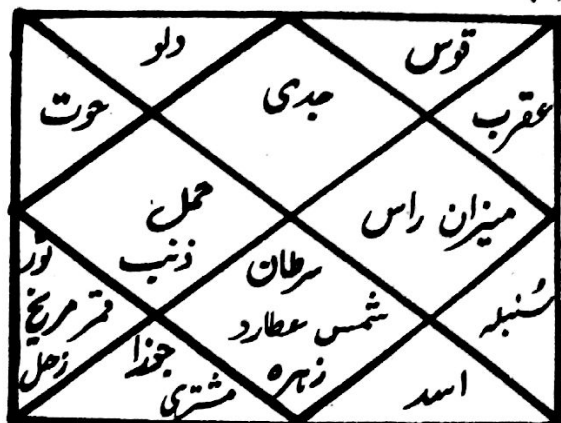 قوس
جدی
دلو
حوت
عقرب
حمل
ذنب
میزان راس
ثور
قمر مریخ
زحل
سرطان
شمس عطارد
زہرہ
سنبلہ
جوزا
مشتری
اسد